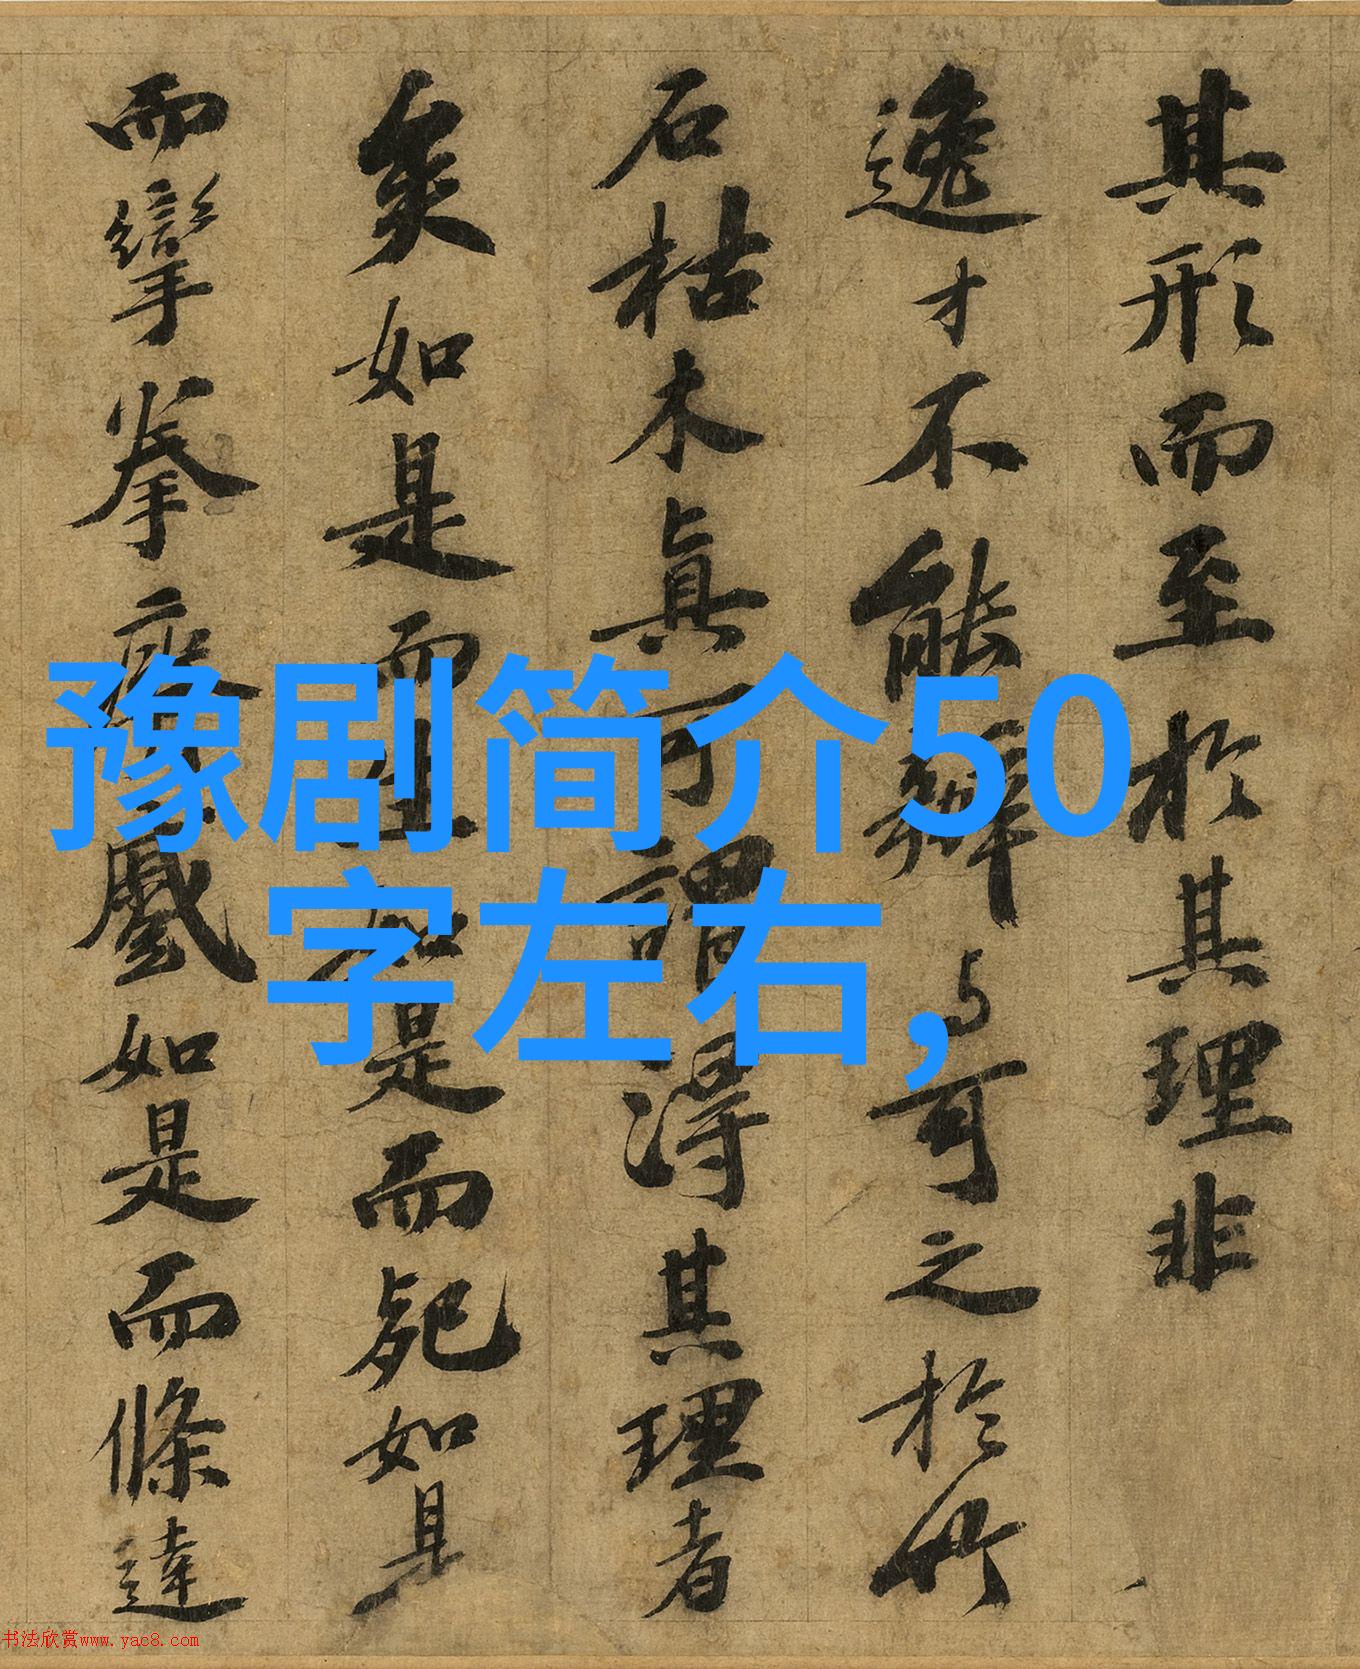 其形而至於其理非
逸才不能辦与哥之於竹
石枯木真可謂得其理者
矣如是而生如是而死如是
而攣拳瘠蹙如是而條達
豫剧简介50
字左右,
书法欣赏www.yac8.com